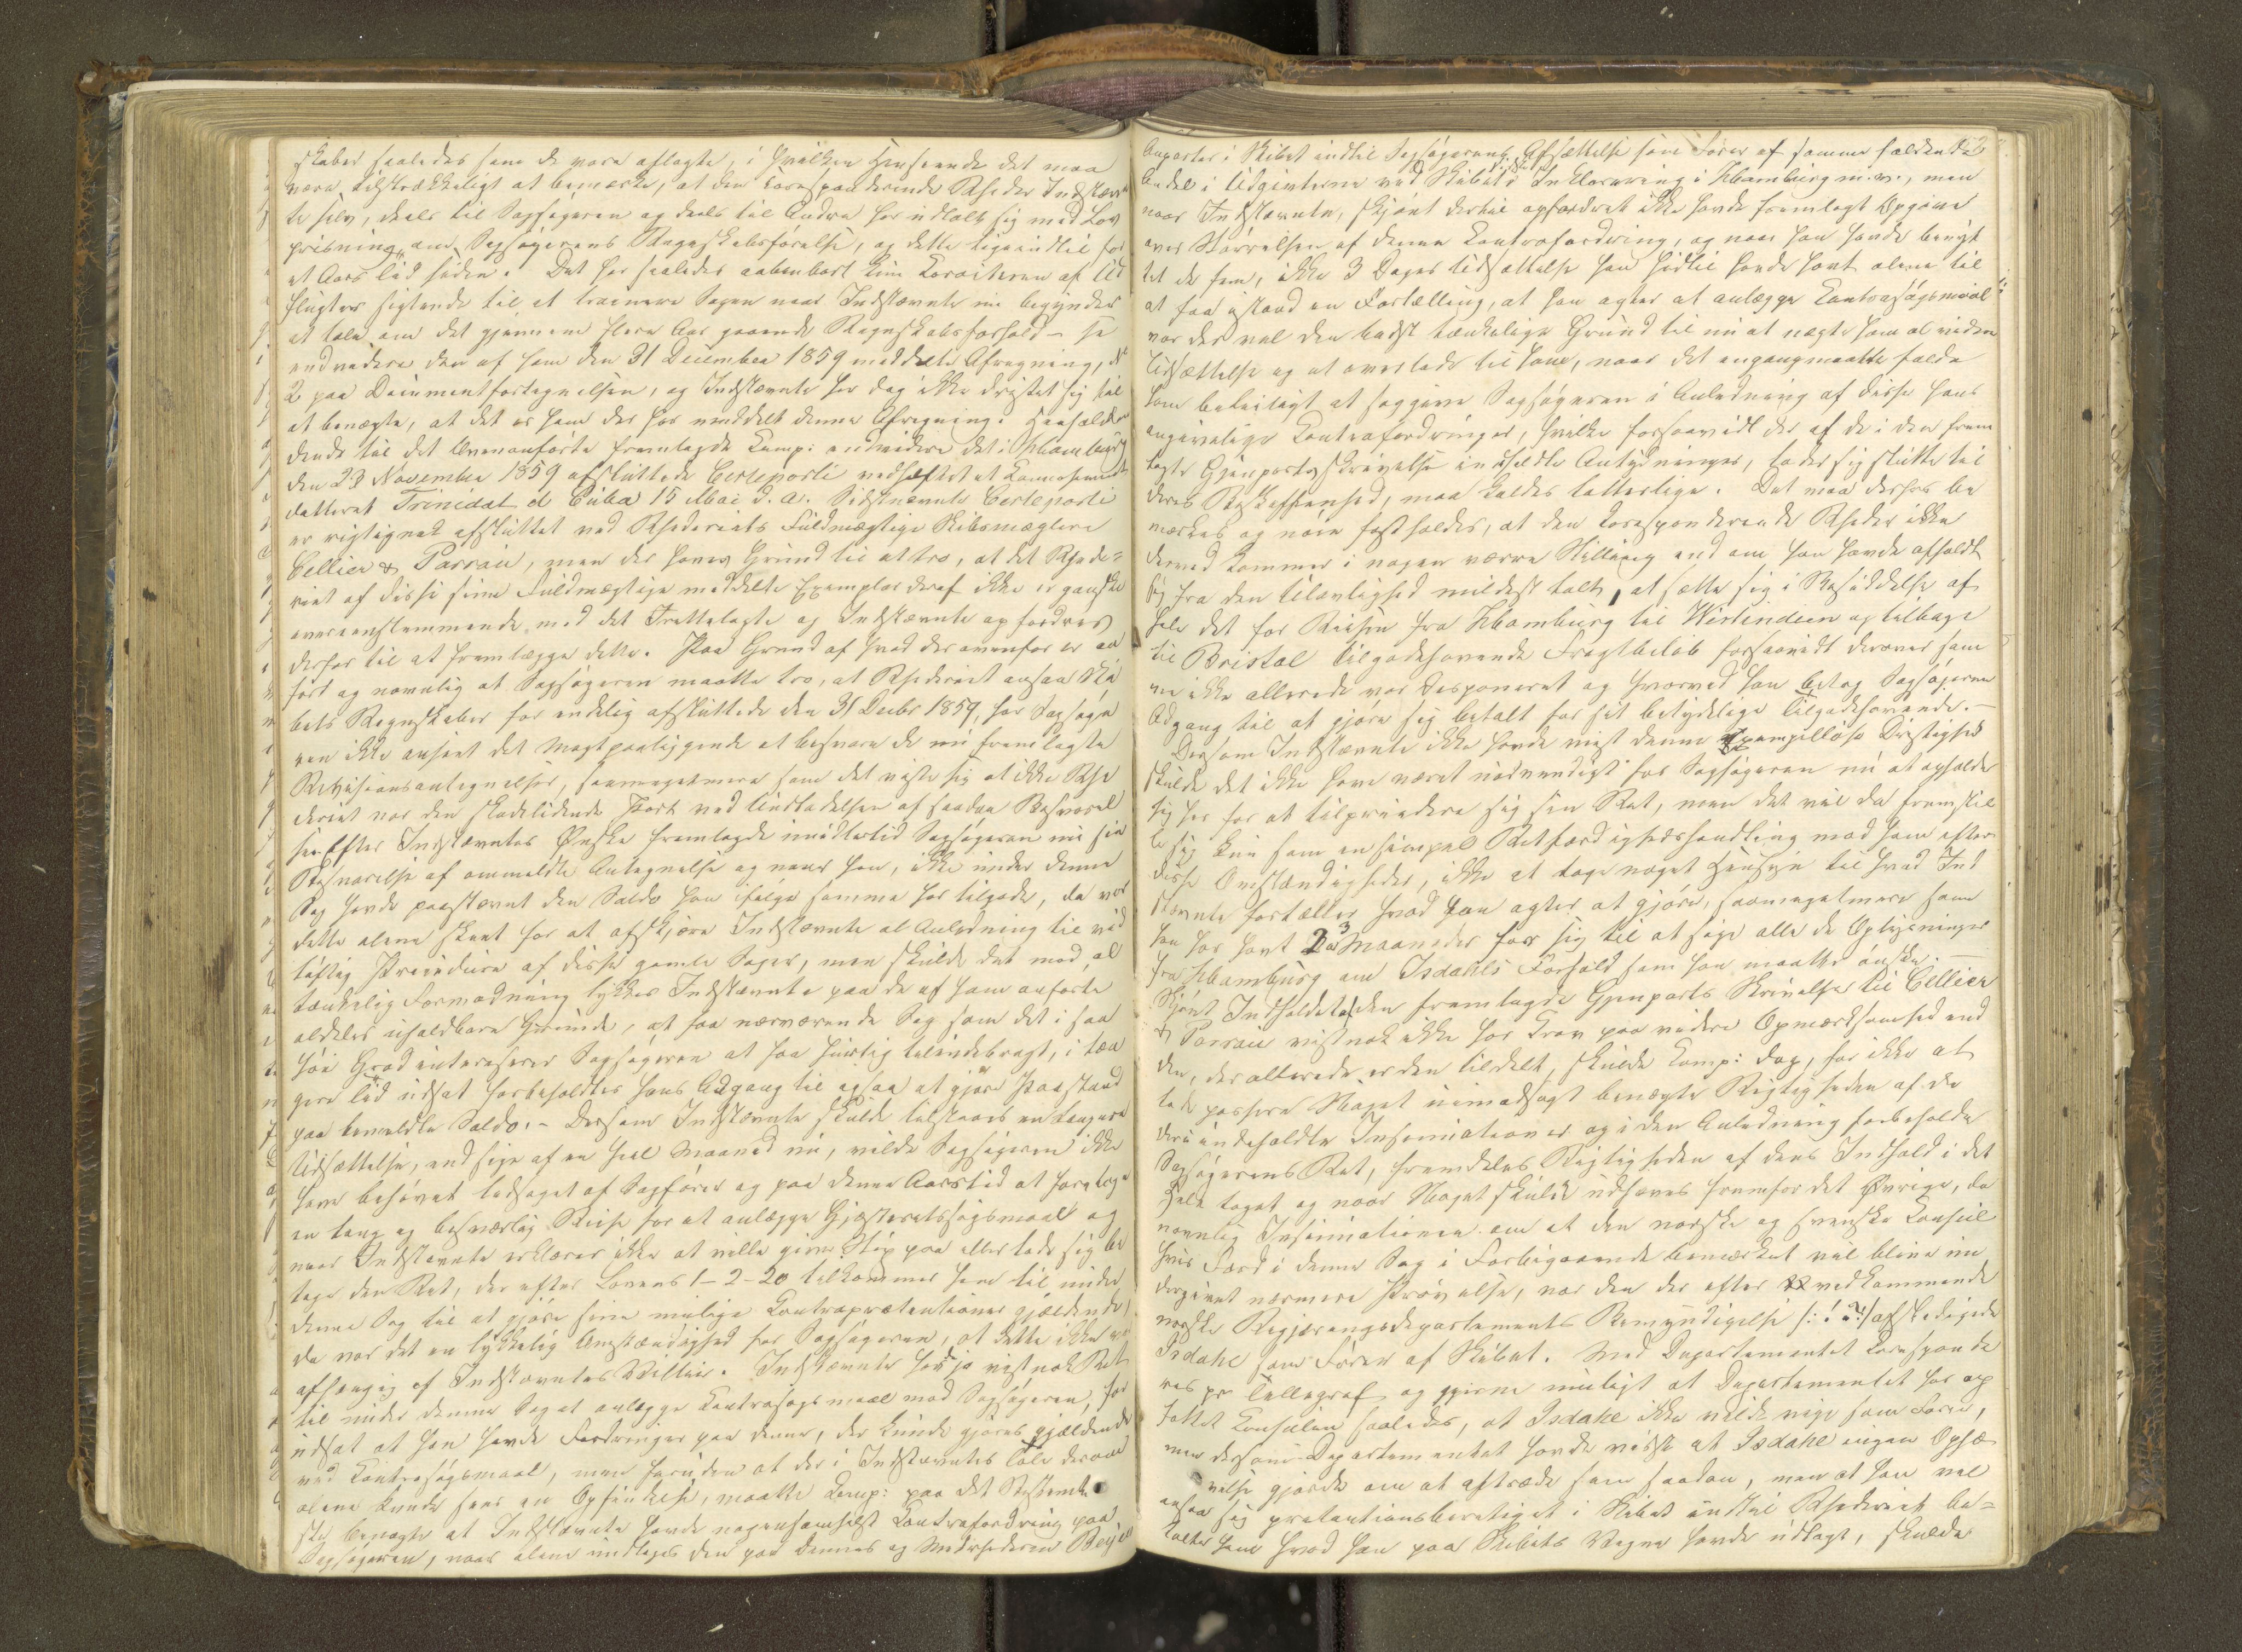 skaber saaledes som de vare aflagte, i hvilken Henseende det maa
være tilstrækkeligt at bemærke, at den Corresponderende Rheder Indstævn
te selv, deels til Sagsøgeren og deels til Andre har udtalt sig med Lov
prisning om Sagsøgerens Regnskabsførelse, og dette ligeindtil for
et Aars Tid siden. Det har saaledes aabenbart kun Caracteren af Ud
flugter sigtende til at trainere Sagen naar Indstævnte nu begynder
at tale om det gjennem flere Aar gaaende Regnskabsforhold – se
endvidere den af ham den 31 December 1859 meddelte Afregning, №
2 paa Documentfortegnelsen, og Indstævnte har dog ikke dristet sig til
at benægte, at det er ham der har meddelt denne Afregning. Henhold
dende til det Ovenanførte fremlagde Comp: endvidere det i Hamburg
den 23 November 1859 afsluttede Certeparti vedheftet et Connossement
datteret Trinidat de Cuba 15 Mai d. A. Sidstnævnte Certeparti
er rigtignok afsluttet ved Rhederiets Fuldmægtige Skibsmæglere
Cellier & Parrau, men der haves Grund til at tro, at det Rhede-
riet af disse sine Fuldmægtige meddelte Exemplar deraf ikke er ganske
overeensstemmende med det Fremlagte og Indstævnte opfordres
derfor til at fremlægge dette. Paa Grund af hvad der ovenfor er an
ført og navnlig at Sagsøgeren maatte tro, at Rhederiet ansaa Ski
bets Regnskaber for endelig afsluttede den 31 Decbr 1859, har Sagsøge
ren ikke anseet det magtpaaliggende at besvare de nu fremlagte
Revisionsantegnelser, saameget mere som det viste sig at ikke Rhe
deriet var den skadelidende Part ved Undladelsen af saadan Besvarel
se. Efter Indstævntes Ønske fremlagde imidlertid Sagsøgeren nu sin
Besvarelse af ommeldte Antegnelse og naar han, ikke under denne
Sag havde paastævnt den Saldo han ifølge samme har tilgode, da var
dette alene skeet for at afskjære Indstævnte al Anledning til vid
løftig Procedure af disse gamle Sager, men skulde det mod al
tænkelig Formodning lykkes Indstævnte paa de af ham anførte
aldeles uholdbare Grunde, at faa nærværende Sag som det i saa
høi Grad interesserer Sagsøgeren at faa hurtig tilendebragt, i læn
gere Tid udsat forbeholdtes hans Adgang til ogsaa at gjøre Paastand
paa bemeldte Saldo. – Dersom Indstævnte skulde tilstaaes en længere
Udsættelse, end sige af en heel Maaned nu, vilde Sagsøgeren ikke
have behøvet ledsaget af Sagfører og paa denne Aarstid at foretage
en lang og besværlig Reise for at anlægge Gjæsteretssøgsmaal og
naar Indstævnte erklærer ikke at ville give Slip paa eller lade sig be
tage den Ret, der efter Lovens 1–2–20 tilkommer ham til under
denne Sag til at gjøre sine mulige Contraprætentioner gjældende,
da var det en lykkelig Omstændighed for Sagsøgeren, at dette ikke var
afhængig af Indstævntes Villie. Indstævnte havde jo vistnok Ret
til under denne Sag at anlægge Contrasøgsmaal mod Sagsøgeren, for
udsat at han havde Fordringer paa denne, der kunde gjøres gjældende
ved Contrasøgsmaal, men foruden at der i Indstævntes Tale derom
alene kunde sees en Opfindelse, maatte Comp: paa det Bestemte
ste benægte at Indstævnte havde nogensomhelst Contrafordring paa
Sagsøgeren, naar alene undtages den paa dennes og Medrhederen Beyer
Anparter i Skibet indtil Sagsøgerens Afsættelse som Fører af samme faldende
Andel i Udgifterne ved Skibets sidste Inklarering i Hamburg m. v., men
naar Indstævnte, skjønt dertil opfordret ikke havde fremlagt Opgave
over Størrelsen af denne Contrafordring, og naar han havde benyt
tet de fem, ikke 3 Dages Udsættelse han hidtil havde havt alene til
at faa istand en Fortælling, at han agter at anlægge Contrasøgsmaal
var der vel den bedst tænkelige Grund til nu at nægte ham al videre
Udsættelse og at overlade til ham, naar det engang maatte falde
ham beleiligt at sagsøge Sagsøgeren i Anledning af disse hans
angivelige Contrafordringer, hvilke forsaavidt der af de i den frem
lagte Gjenpartsskrivelse indeholdte Antydninger, lader sig slutte til
deres Beskaffenhed, maa kaldes latterlige. Det maa derfor be
mærkes og nøie fastholdes, at den Corresponderende Rheder ikke
derved kommer i nogen værre Stilling end om han havde afholdt
sig fra den Ulovlighed mildest talt, at sætte sig i Besiddelse af
hele det for Reisen fra Hamburg til Westindien og tilbage
til Bristol tilgodehavende Fragtbeløb forsaavidt derover som
nu ikke allerede var disponeret og hvorved han betog Sagsøgeren
Adgang til at gjøre sig betalt for sit betydelige Tilgodehavende. –
Dersom Indstævnte ikke havde vist denne exempelløse Dristighed
skulde det ikke have været nødvendigt for Sagsøgeren nu at opholde
sig her for at tilprocedere sig sin Ret, men det vil da fremstil
le sig kun som en simpel Retfærdighedshandling mod ham efter
disse Omstændigheder, ikke at tage noget Hensyn til hvad Ind
stævnte fortæller hvad han agter at gjøre, saameget mere som
han har havt 3 Maaneder for sig til at søge alle de Oplysninger
fra Hamburg om Isdahls Forhold som han maatte ønske. –
Skjønt Indholdet af den fremlagde Gjenparts Skrivelse til Cellier
& Parrau vistnok ikke har Krav paa videre Opmærksomhed end
den, der allerede er den tildelt, skulde Comp: dog, for ikke at
lade passere Noget uimodsagt benægte Rigtigheden af de
deri indeholdte Insinuationer og i den Anledning forbeholde
Sagsøgerens Ret, fremdeles Rigtigheden af dens Indhold i det
Hele taget og naar Noget skulde udhæves fremfor det Øvrige, da
navnlig Insinuationen om at den norske og svenske Consul
hvis Færd i denne Sag i Forbigaaende bemærket vel bliver un
dergivet nærmere Prøvelse, var den der efter vedkommende
norske Regjeringsdepartements Bemyndigelse /: ! ? :/ afskedigede
Isdahl som Fører af Skibet. Med Departementet correspondere
res pr Tellegraf og gjerne muligt at Departementet har op
fattet Consulen saaledes, at Isdahl ikke vilde vige som Fører,
men dersom Departementet havde vidst at Isdahl ingen Ophæ
velse gjorde om at aftræde som saadan, men at han vel
ansaa sig prætentionsberettiget i Skibet indtil Rhederiet be-
talte ham hvad han paa Skibets Vegne havde udlagt, skulde